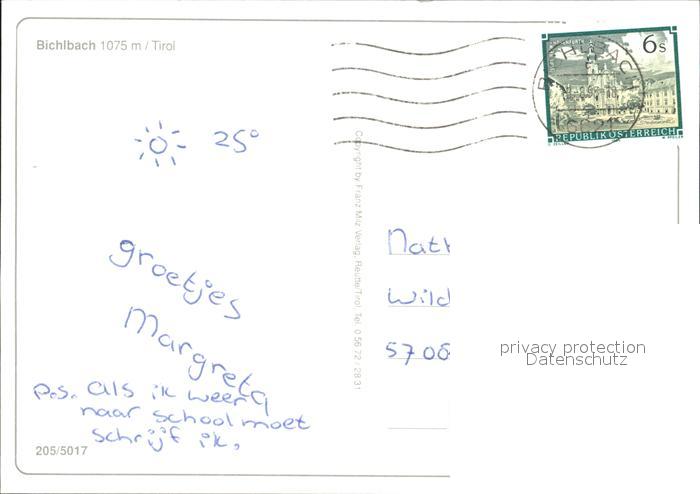 Bichlbach 1075 m / Tirol
6s
REPUBLIK ÖSTERREICH
25°
groetjes
Margreta
p.s. als ik weer
naar school moet
schrijf ik.
205/5017
Copyright by Franz Milz Verlag, Reutte/Tirol, Tel. 0 56 72 / 28 31
Nath
Wild
5708
privacy protection
Datenschutz